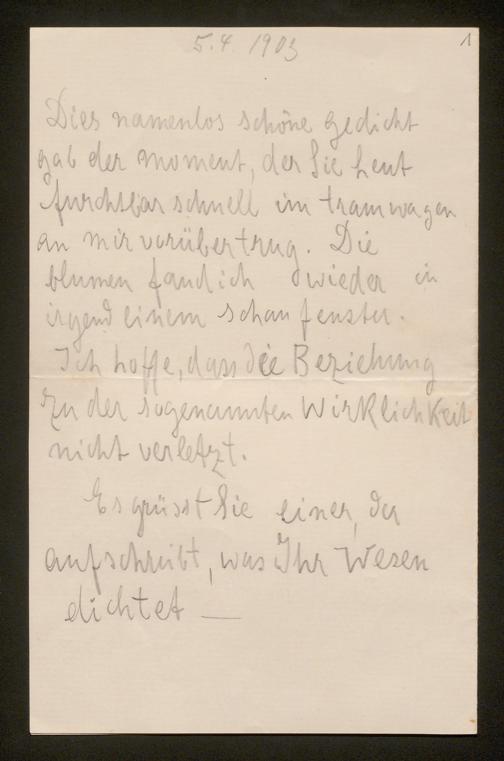 5.4. 1903
1
Dies namenlos schöne gedicht
gab der moment, der Sie heut
furchtbar schnell im tramwagen
an mir vorübertrug. Die
blumen fand ich wieder in
irgend einem schaufenster.
Ich hoffe, dass die Beziehung
zu der sogenannten Wirklichkeit
nicht verletzt.
Es grüsst Sie einer, der
aufschreibt, was Ihr Wesen
dichtet —